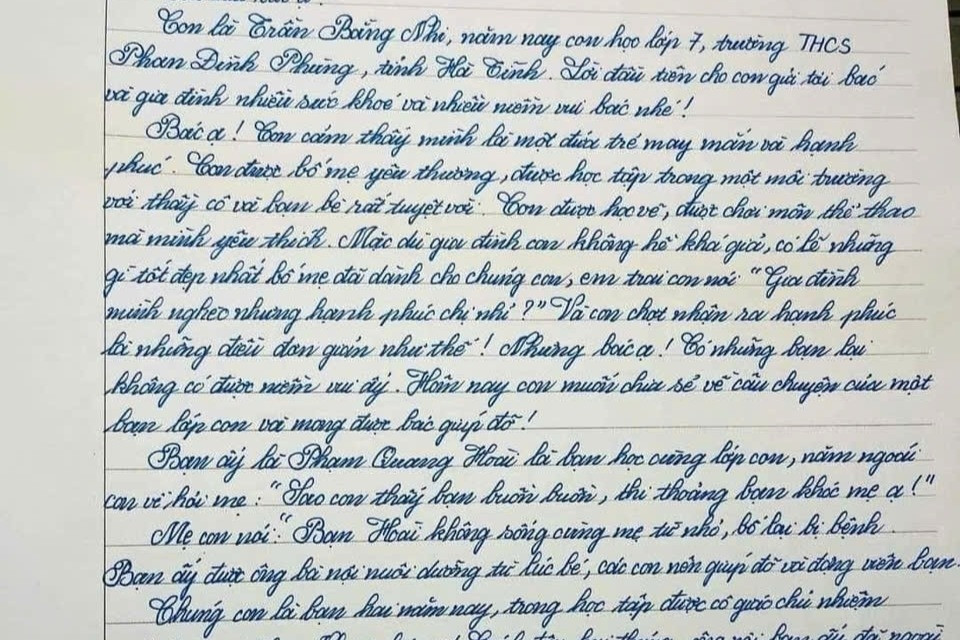 Con là Trần Băng Nhi, năm nay con học lớp 7, trường THCS
Phan Đình Phùng, tỉnh Hà Tĩnh. Lời đầu tiên cho con gửi tới bác
và gia đình nhiều sức khoẻ và nhiều niềm vui bác nhé!
Bác ạ! Con cảm thấy mình là một đứa trẻ may mắn và hạnh
phúc. Con được bố mẹ yêu thương, được học tập trong một môi trường
với thầy cô và bạn bè rất tuyệt vời. Con được học vẽ, được chơi môn thể thao
mà mình yêu thích. Mặc dù gia đình con không hề khá giả, có lẽ những
gì tốt đẹp nhất bố mẹ đã dành cho chúng con, em trai con nói "Gia đình
mình nghèo nhưng hạnh phúc chị nhỉ?" Và con chợt nhận ra hạnh phúc
là những điều đơn giản như thế! Nhưng bác ạ! Có những bạn lại
không có được niềm vui ấy. Hôm nay con muốn chia sẻ về câu chuyện của một
bạn lớp con và mong được bác giúp đỡ!
Bạn ấy là Phạm Quang Hoài là bạn học cùng lớp con, năm ngoái
con về hỏi mẹ: "Sao con thấy bạn buồn buồn, thi thoảng bạn khóc mẹ ạ!"
Mẹ con nói: "Bạn Hoài không sống cùng mẹ từ nhỏ, bố lại bị bệnh.
Bạn ấy được ông bà nội nuôi dưỡng từ lúc bé, các con nên giúp đỡ và động viên bạn.
Chúng con là bạn hai năm nay, trong học tập được cô giáo chủ nhiệm